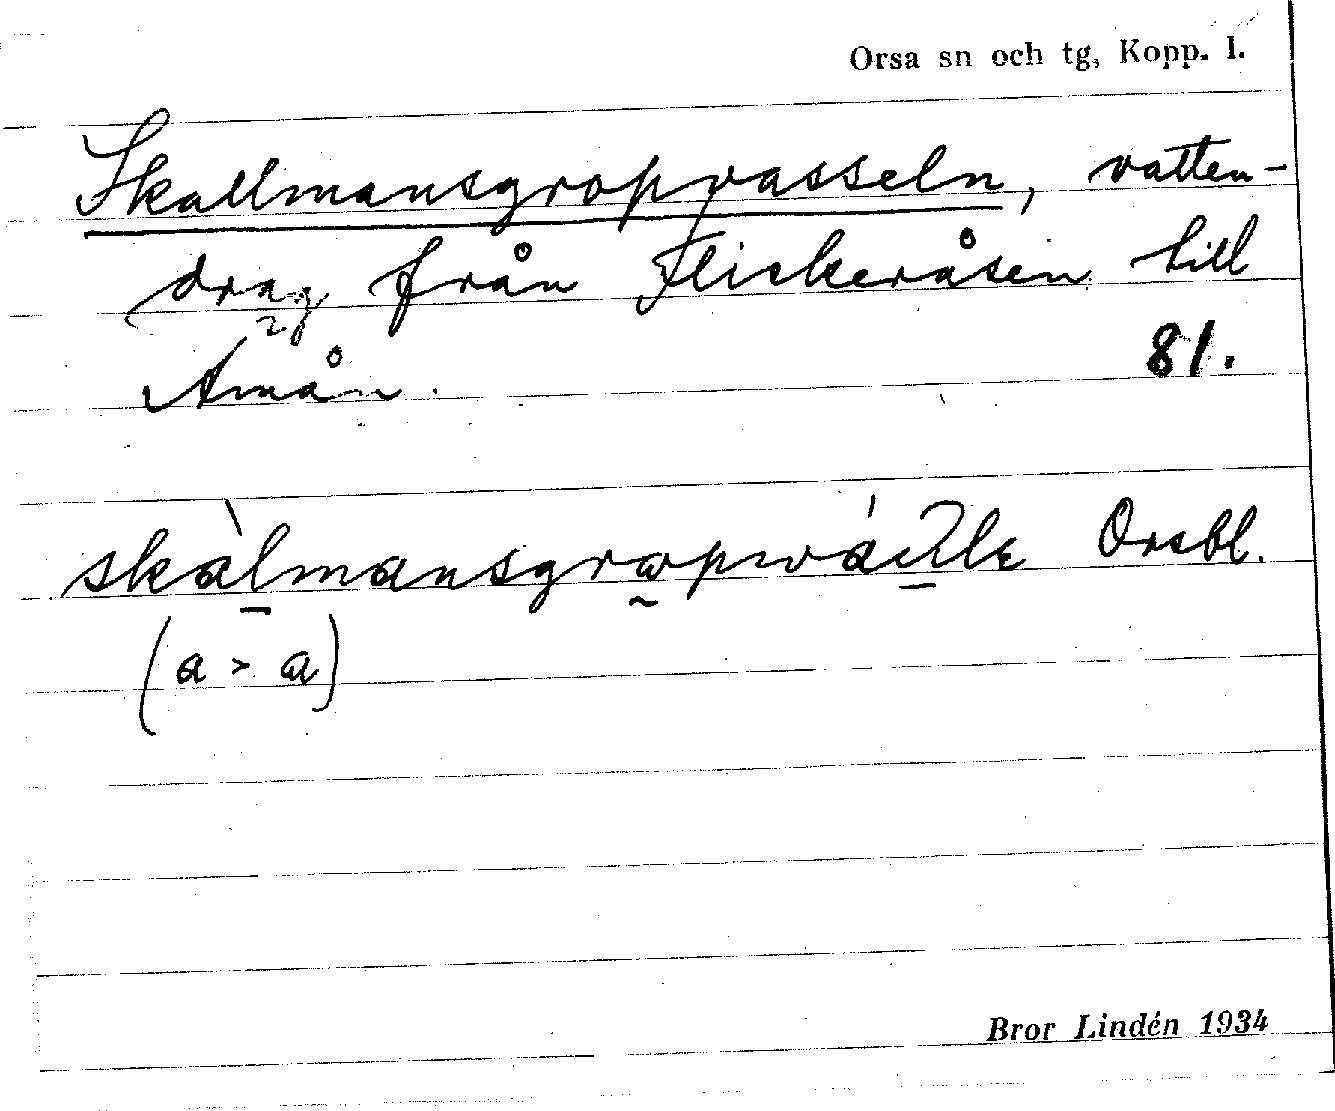 Orsa sn och tg, Kopp. l.
Skallmansgropvasseln, vatten-
drag från Flickeråsen till
Amån. 81.
Orsbl.
(a > a)
Bror Lindén 1934